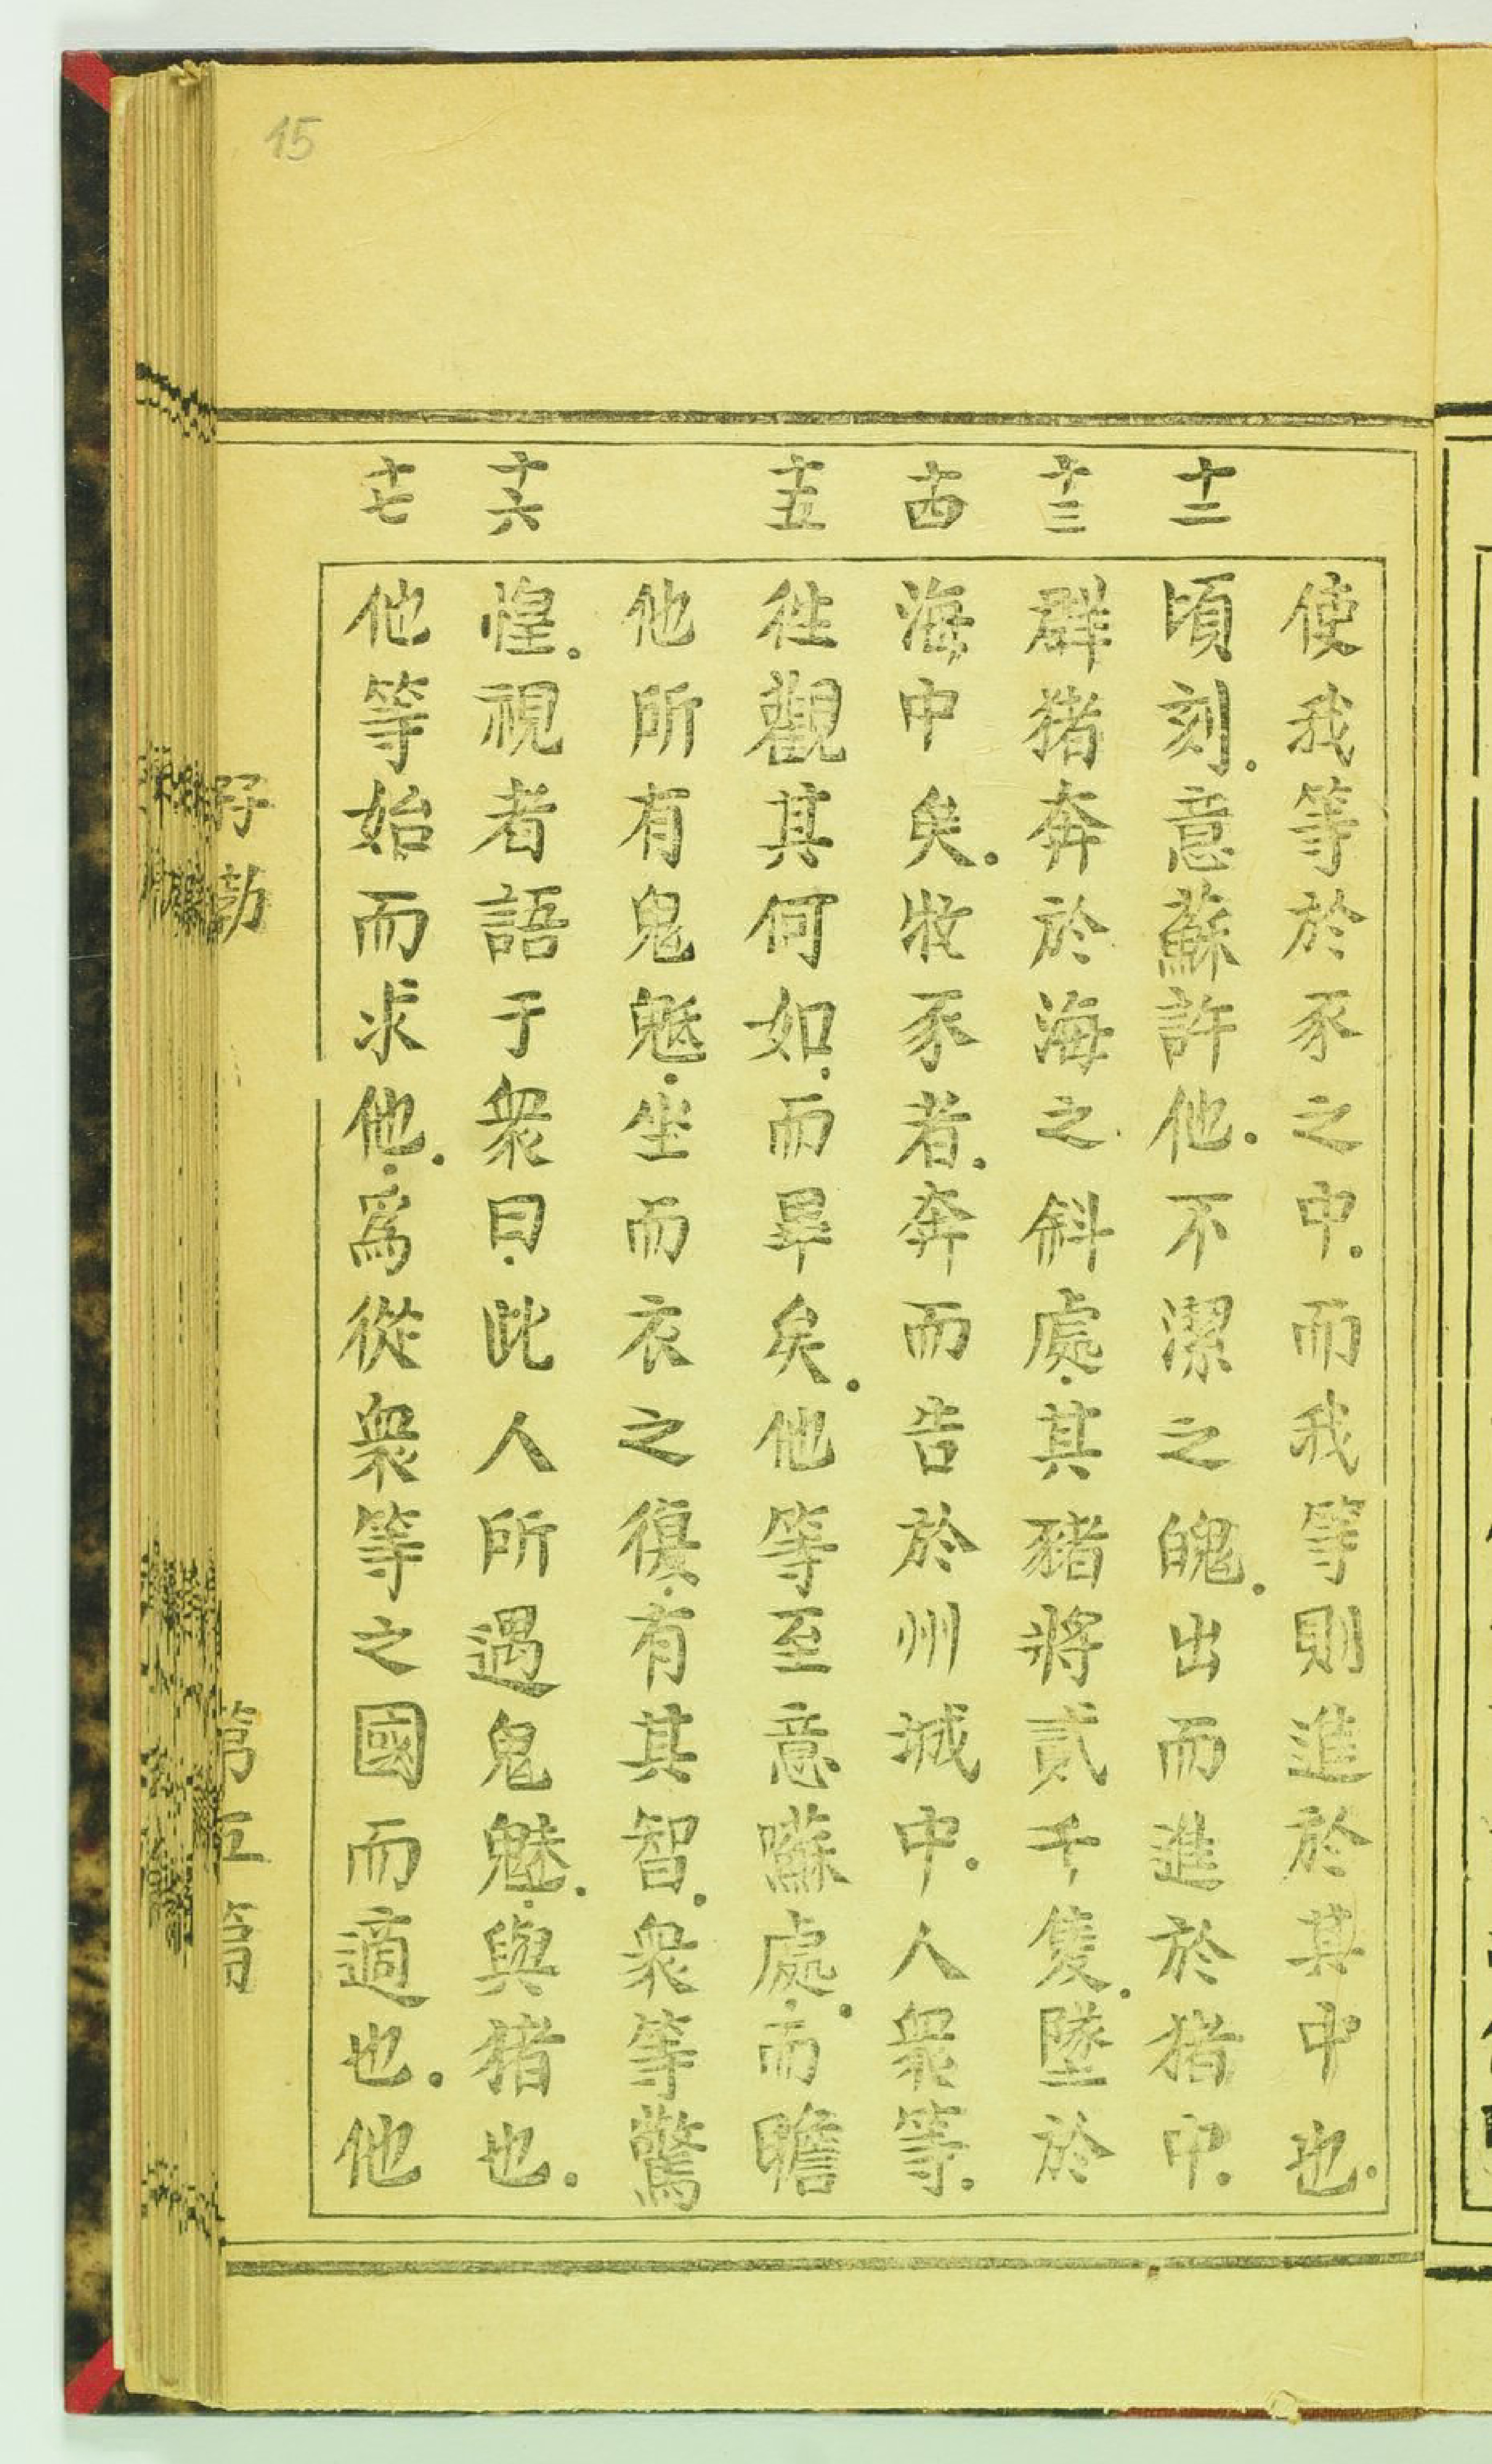 15
使我等於豕之中。而我等則進於其中也。
十二
頃刻。意蘇許他。不潔之魄。出而進於猪中。
十三
群猪奔於海之斜處。其猪將貳千隻。墜於
十四
海中矣。牧豕者。奔而告於州城中。人衆等。
十五
徃觀其何如。而畢矣。他等至意囌處。而瞻
他所有鬼魅。坐而衣之復。有其智。衆等驚
十六
惶。視者語于衆曰。此人所遇鬼魅。與猪也。
十七
他等始而求他。爲從衆等之國而適也。他
第五篇